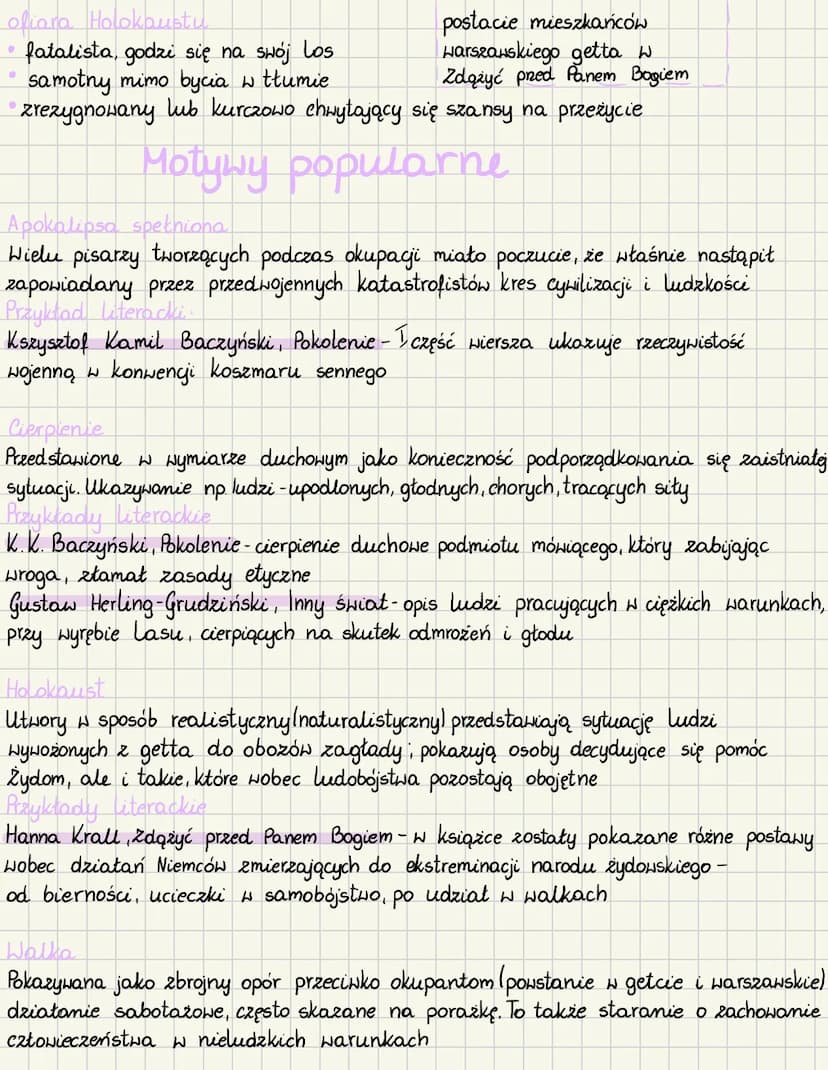 ofiara Holokaustu
• fatalista, godzi się na swój los
• samotny mimo bycia w tłumie
• zrezygnowany lub kurczowo chwytający się szansy na przeżycie
postacie mieszkańców
warszawskiego getta w
Zdążyć pred Panem Bogiem
Motywy popularne
Apokalipsa spełniona
Wielu pisarzy tworzących podczas okupacji miało poczucie, że właśnie nastąpił
zapowiadany przez przedwojennych katastrofistów kres cywilizacji i ludzkości
Przykład literacki
Kszysztof Kamil Baczyński, Pokolenie - I część wiersza ukazuje rzeczywistość
wojenną w konwencji koszmaru sennego
Cierpienie
Przedstawione w wymiarze duchowym jako konieczność podporządkowania się zaistniałej
sytuacji. Ukazywanie np. ludzi - upodlonych, głodnych, chorych, tracących siły
Przykłady literackie
K.K. Baczyński, Pokolenie - cierpienie duchowe podmiotu mówiącego, który zabijając
wroga, złamał zasady etyczne
Gustaw Herling-Grudziński, Inny świat - opis ludzi pracujących w ciężkich warunkach,
przy wyrębie lasu, cierpiących na skutek odmrożeń i głodu
Holokaust
Utwory w sposób realistyczny (naturalistyczny) przedstawiają sytuację ludzi
wywożonych z getta do obozów zagłady; pokazują osoby decydujące się pomóc
Żydom, ale i takie, które wobec ludobójstwa pozostają obojętne
Przykłady literackie
Hanna Krall, Zdążyć przed Panem Bogiem - w książce zostały pokazane różne postawy
wobec działań Niemców zmierzających do ekstreminacji narodu żydowskiego -
od bierności, ucieczki w samobójstwo, po udział w walkach
Walka
Pokazywana jako zbrojny opór przeciwko okupantom (powstanie w getcie i warszawskie)
działanie sabotażowe, często skazane na porażkę. To także staranie o zachowanie
człowieczeństwa w nieludzkich warunkach